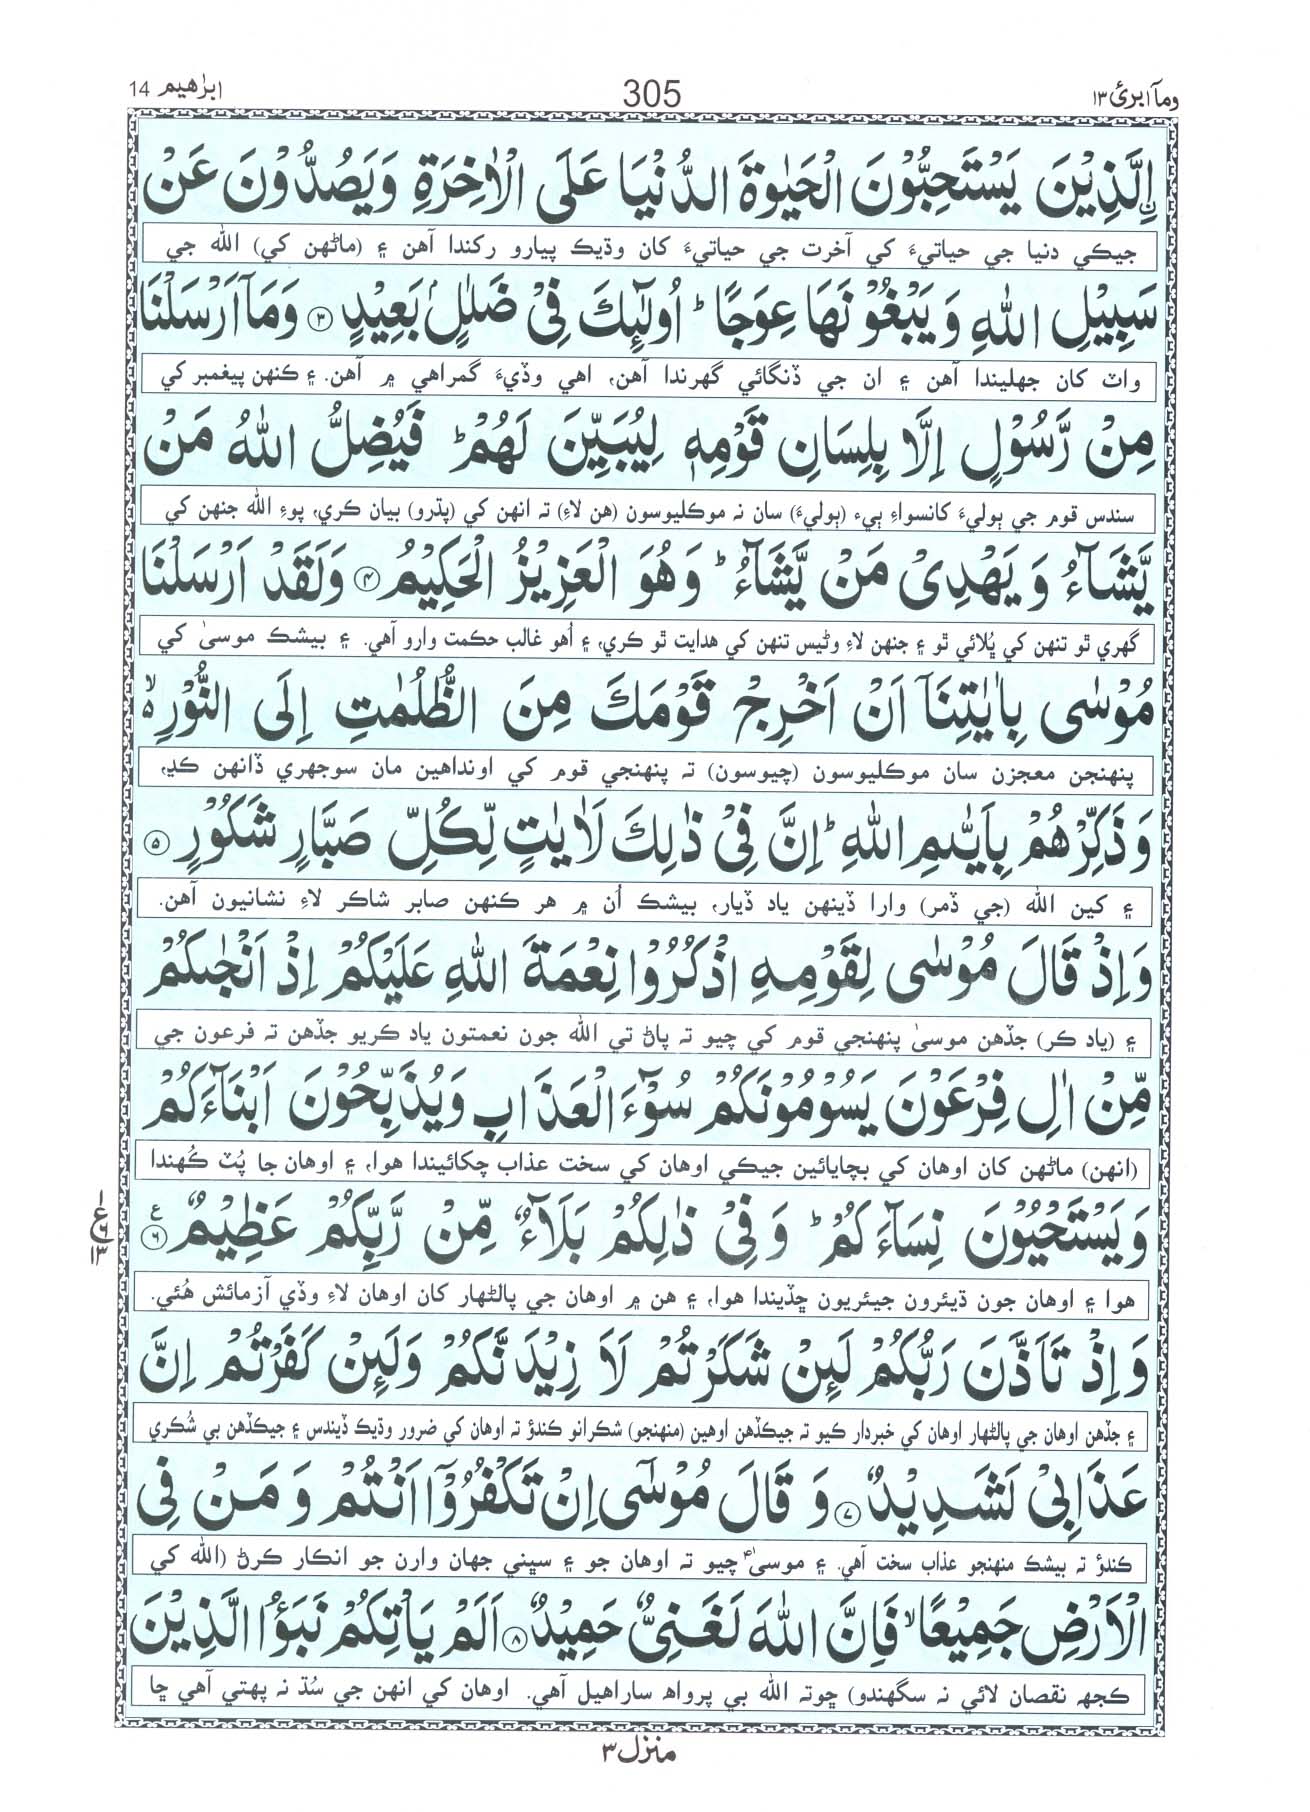 ومآ ابرئ ١٣
305
ابرٰهيم 14
اِۨلَّذِيْنَ يَسْتَحِبُّوْنَ الْحَيٰوةَ الدُّنْيَا عَلَى الْاٰخِرَةِ وَيَصُدُّوْنَ عَنْ
جيڪي دنيا جي حياتيءَ کي آخرت جي حياتيءَ کان وڌيڪ پيارو رکندا آهن ۽ (ماڻهن کي) الله جي
سَبِيْلِ اللّٰهِ وَيَبْغُوْنَهَا عِوَجًا ؕ اُولٰٓئِكَ فِيْ ضَلٰلٍۭ بَعِيْدٍ ﴿٣﴾ وَمَآ اَرْسَلْنَا
واٽ کان جهليندا آهن ۽ ان جي ڏنگائي گهرندا آهن، اهي وڏيءَ گمراهي ۾ آهن. ۽ ڪنهن پيغمبر کي
مِنْ رَّسُوْلٍ اِلَّا بِلِسَانِ قَوْمِهٖ لِيُبَيِّنَ لَهُمْ ؕ فَيُضِلُّ اللّٰهُ مَنْ
سندس قوم جي ٻوليءَ کانسواءِ ٻيءَ (ٻوليءَ) سان نہ موڪليوسون (هن لاءِ) تہ انهن کي (پڌرو) بيان ڪري، پوءِ الله جنهن کي
يَّشَآءُ وَيَهْدِيْ مَنْ يَّشَآءُ ؕ وَهُوَ الْعَزِيْزُ الْحَكِيْمُ ﴿٤﴾ وَلَقَدْ اَرْسَلْنَا
گهري ٿو تنهن کي ڀُلائي ٿو ۽ جنهن لاءِ وڻيس تنهن کي هدايت ٿو ڪري، ۽ اُهو غالب حڪمت وارو آهي. ۽ بيشڪ موسىٰ کي
مُوْسٰى بِاٰيٰتِنَآ اَنْ اَخْرِجْ قَوْمَكَ مِنَ الظُّلُمٰتِ اِلَى النُّوْرِ ۙ۬
پنهنجن معجزن سان موڪليوسون (چيوسون) تہ پنهنجي قوم کي اونداهين مان سوجهري ڏانهن ڪڍ،
وَذَكِّرْهُمْ بِاَيّٰىمِ اللّٰهِ ؕ اِنَّ فِيْ ذٰلِكَ لَاٰيٰتٍ لِّكُلِّ صَبَّارٍ شَكُوْرٍ ﴿٥﴾
۽ کين الله (جي ڏمر) وارا ڏينهن ياد ڏيار، بيشڪ اُن ۾ هر ڪنهن صابر شاڪر لاءِ نشانيون آهن.
وَاِذْ قَالَ مُوْسٰى لِقَوْمِهِ اذْكُرُوْا نِعْمَةَ اللّٰهِ عَلَيْكُمْ اِذْ اَنْجٰىكُمْ
۽ (ياد ڪر) جڏهن موسىٰ پنهنجي قوم کي چيو تہ پاڻ تي الله جون نعمتون ياد ڪريو جڏهن تہ فرعون جي
مِّنْ اٰلِ فِرْعَوْنَ يَسُوْمُوْنَكُمْ سُوْٓءَ الْعَذَابِ وَيُذَبِّحُوْنَ اَبْنَآءَكُمْ
(انهن) ماڻهن کان اوهان کي بچايائين جيڪي اوهان کي سخت عذاب چکائيندا هوا، ۽ اوهان جا پُٽ ڪُهندا
وَيَسْتَحْيُوْنَ نِسَآءَكُمْ ؕ وَفِيْ ذٰلِكُمْ بَلَآءٌ مِّنْ رَّبِّكُمْ عَظِيْمٌ ﴿٦﴾ ع
١ ع ٦ ١٣
هوا ۽ اوهان جون ڌيئرون جيئريون ڇڏيندا هوا، ۽ هن ۾ اوهان جي پالڻهار کان اوهان لاءِ وڏي آزمائش هُئي.
وَاِذْ تَاَذَّنَ رَبُّكُمْ لَئِنْ شَكَرْتُمْ لَاَزِيْدَنَّكُمْ وَلَئِنْ كَفَرْتُمْ اِنَّ
۽ جڏهن اوهان جي پالڻهار اوهان کي خبردار ڪيو تہ جيڪڏهن اوهين (منهنجو) شڪرانو ڪندؤ تہ اوهان کي ضرور وڌيڪ ڏيندس ۽ جيڪڏهن بي شُڪري
عَذَابِيْ لَشَدِيْدٌ ﴿٧﴾ وَقَالَ مُوْسٰٓى اِنْ تَكْفُرُوْٓا اَنْتُمْ وَمَنْ فِي
ڪندؤ تہ بيشڪ منهنجو عذاب سخت آهي. ۽ موسىٰؑ چيو تہ اوهان جو ۽ سڀني جهان وارن جو انڪار ڪرڻ (الله کي
الْاَرْضِ جَمِيْعًا ۙ فَاِنَّ اللّٰهَ لَغَنِيٌّ حَمِيْدٌ ﴿٨﴾ اَلَمْ يَاْتِكُمْ نَبَؤُا الَّذِيْنَ
ڪجهہ نقصان لائي نہ سگهندو) ڇوتہ الله بي پرواھ ساراهيل آهي. اوهان کي انهن جي سُڌ نہ پهتي آهي ڇا
منزل ٣